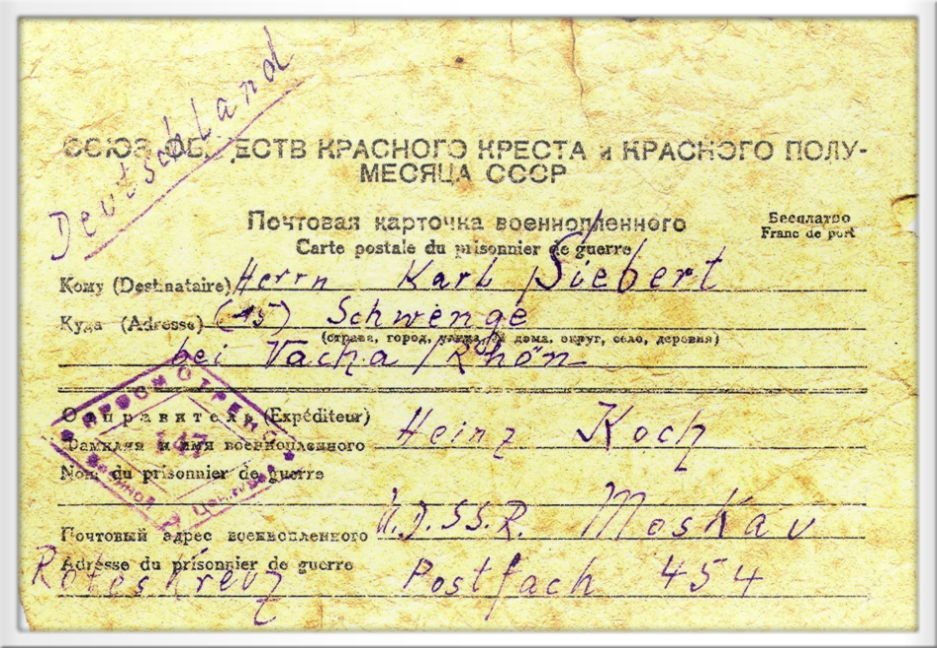 Deutschland
СОЮЗ ОБЩЕСТВ КРАСНОГО КРЕСТА и КРАСНОГО ПОЛУ-
МЕСЯЦА СССР
Почтовая карточка военнопленного
Бесплатно
Carte postale du prisonnier de guerre
Franc de port
Кому (Destinataire) Herrn Karl Siebert
Куда (Adresse) (15) Schwenge
(страна, город, улица, № дома, округ, село, деревня)
bei Vacha / Rhön
ПРОСМОТРЕНО
47
Отправитель (Expéditeur)
Фамилия и имя военнопленного Heinz Koch
Nom du prisonnier de guerre
Почтовый адрес военнопленного U.d.SS.R. Moskau
Adresse du prisonnier de guerre
Rotes Kreuz Postfach 454